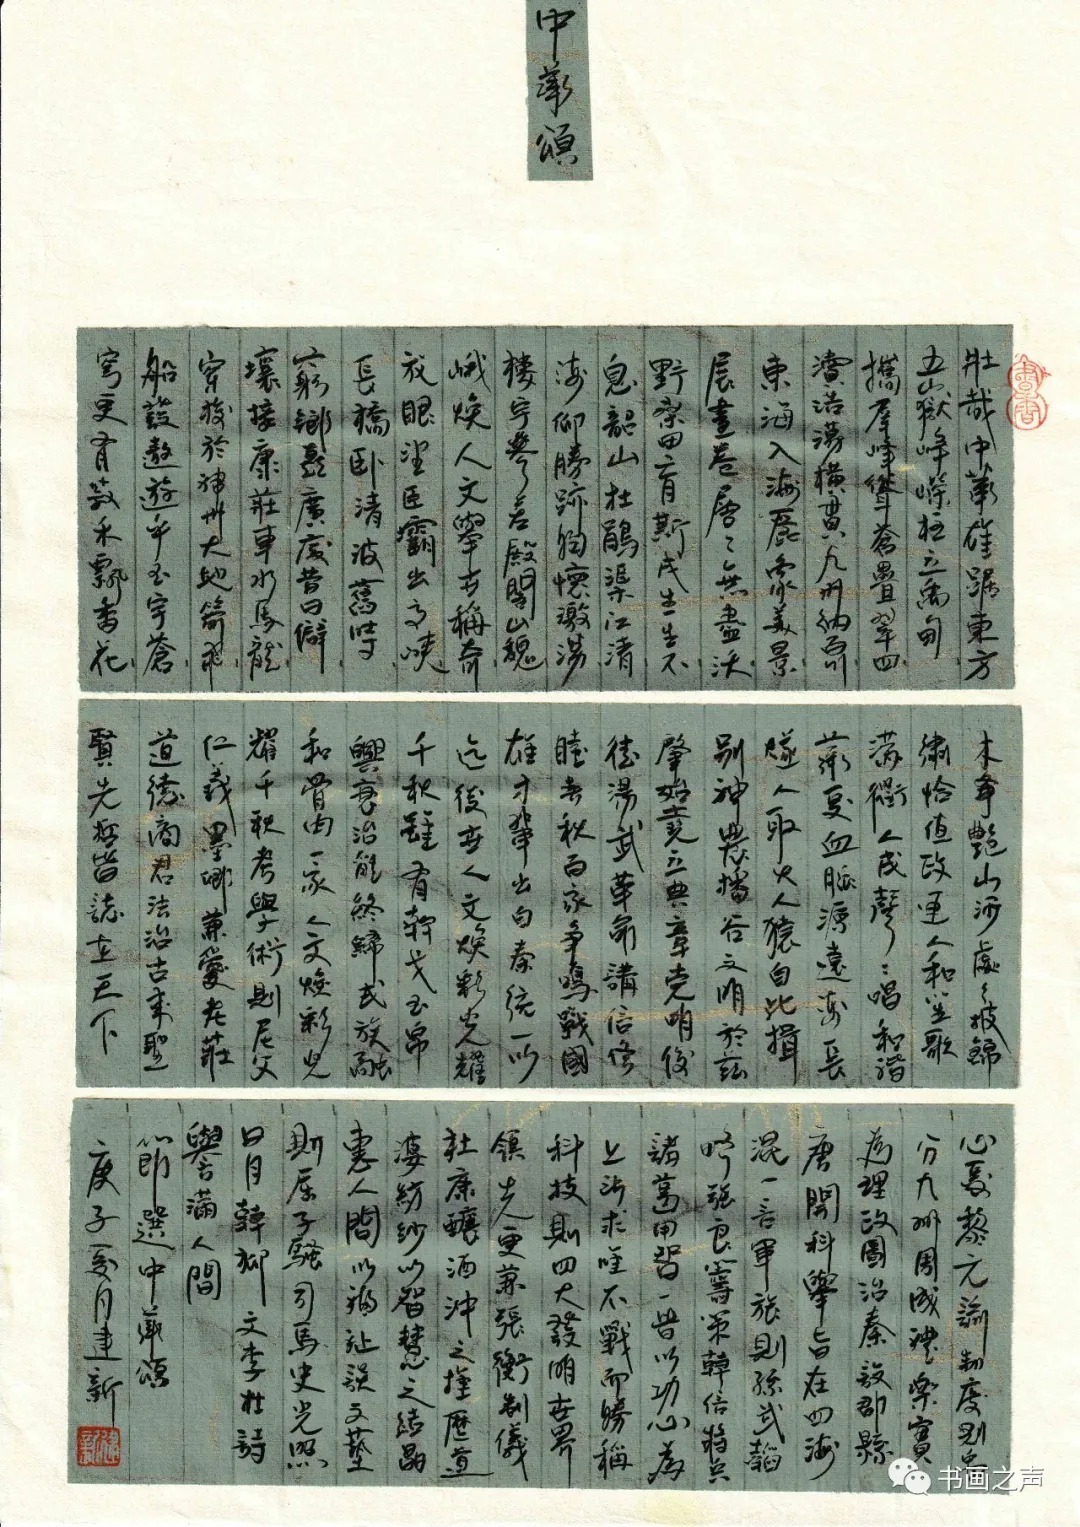 中華頌
壯哉中華雄踞東方
五嶽崢嶸柱立禹甸
攜群峰聳蒼疊翠四
瀆浩蕩橫貫九州納百川
東海入海氣象美景
展畫卷層々無盡沃
野桑田育斯民生生不
息韶山杜鵑渠江清
海仰勝跡胸懷激蕩
樓宇參差殿閣山巍
峨煥人文舉世稱奇
放眼望巨霸出高峽
長橋臥清波舊時
窮鄉喜廣廈昔日僻
壤接康莊車水馬龍
穿梭於神州大地箭飛
船設遨遊乎玉宇蒼
穹更有菽禾飄香花
木爭艷山河處々披錦
繡恰值政通人和笙歌
滿衢人成聲々唱和諧
華夏血脈源遠流長
燧人取火人猿自此揖
別神農播谷文明於茲
肇始堯立典章克明俊
德湯武革命講信修
睦春秋百家爭鳴戰國
雄才輩出自秦統一以
迄後世人文煥彩光耀
千秋雖有干戈玉帛
興衰治亂終歸民族融
和骨肉一家人文煥彩光
耀千秋考學術則尼父
仁義墨卿兼愛老莊
道德商君法治古來聖
賢先哲皆誌在天下
心憂黎元論制度則
分九州周成禮樂實
為理政圖治秦設郡縣
唐開科舉旨在四海
混一言軍旅則孫武韜
略張良籌策韓信將兵
諸葛用智一皆以功心為
上訪求唯不戰而勝稱
科技則四大發明世界
領先更兼張衡制儀
杜康釀酒沖之推歷道
婆紡紗以智慧之結晶
惠人間以福祉談文藝
則屈子騷司馬史光照
日月韓柳文李杜詩
譽滿人間
節選中華頌
庚子夏月建新
書香
建新
书画之声